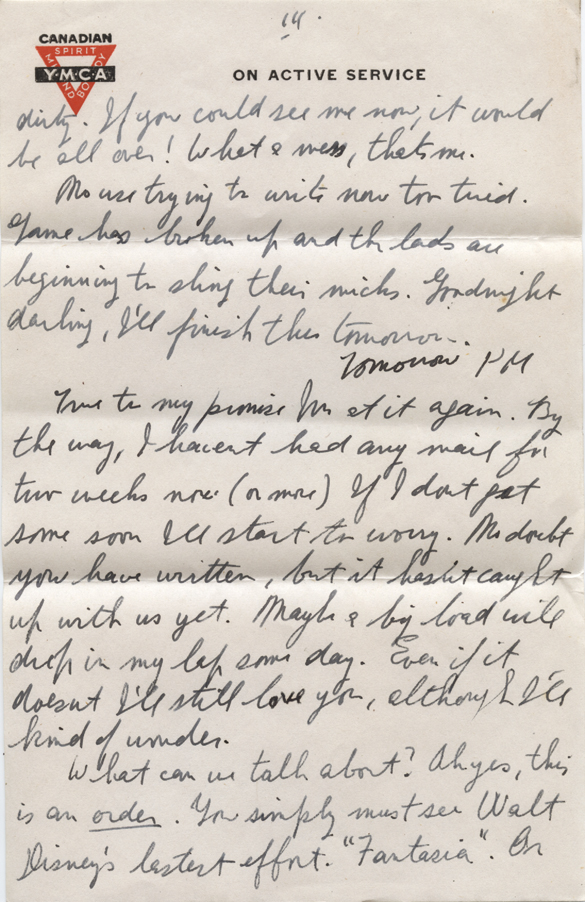 14.
CANADIAN
SPIRIT
MIND BODY
Y·M·C·A
ON ACTIVE SERVICE
dirty. If you could see me now, it would
be all over! What a mess, thats me.
No use trying to write now too tired.
Game has broken up and the lads are
beginning to sling their micks. Goodnight
darling, I'll finish this tomorrow.
Tomorrow PM
True to my promise Im at it again. By
the way, I havent had any mail for
two weeks now (or more) If I dont get
some soon I'll start to worry. No doubt
you have written, but it hasnt caught
up with us yet. Maybe a big load will
drop in my lap some day. Even if it
doesnt I'll still love you, although I'll
kind of wonder.
What can we talk about? Ah yes, this
is an order. You simply must see Walt
Disney's lastest effort. "Fantasia". On